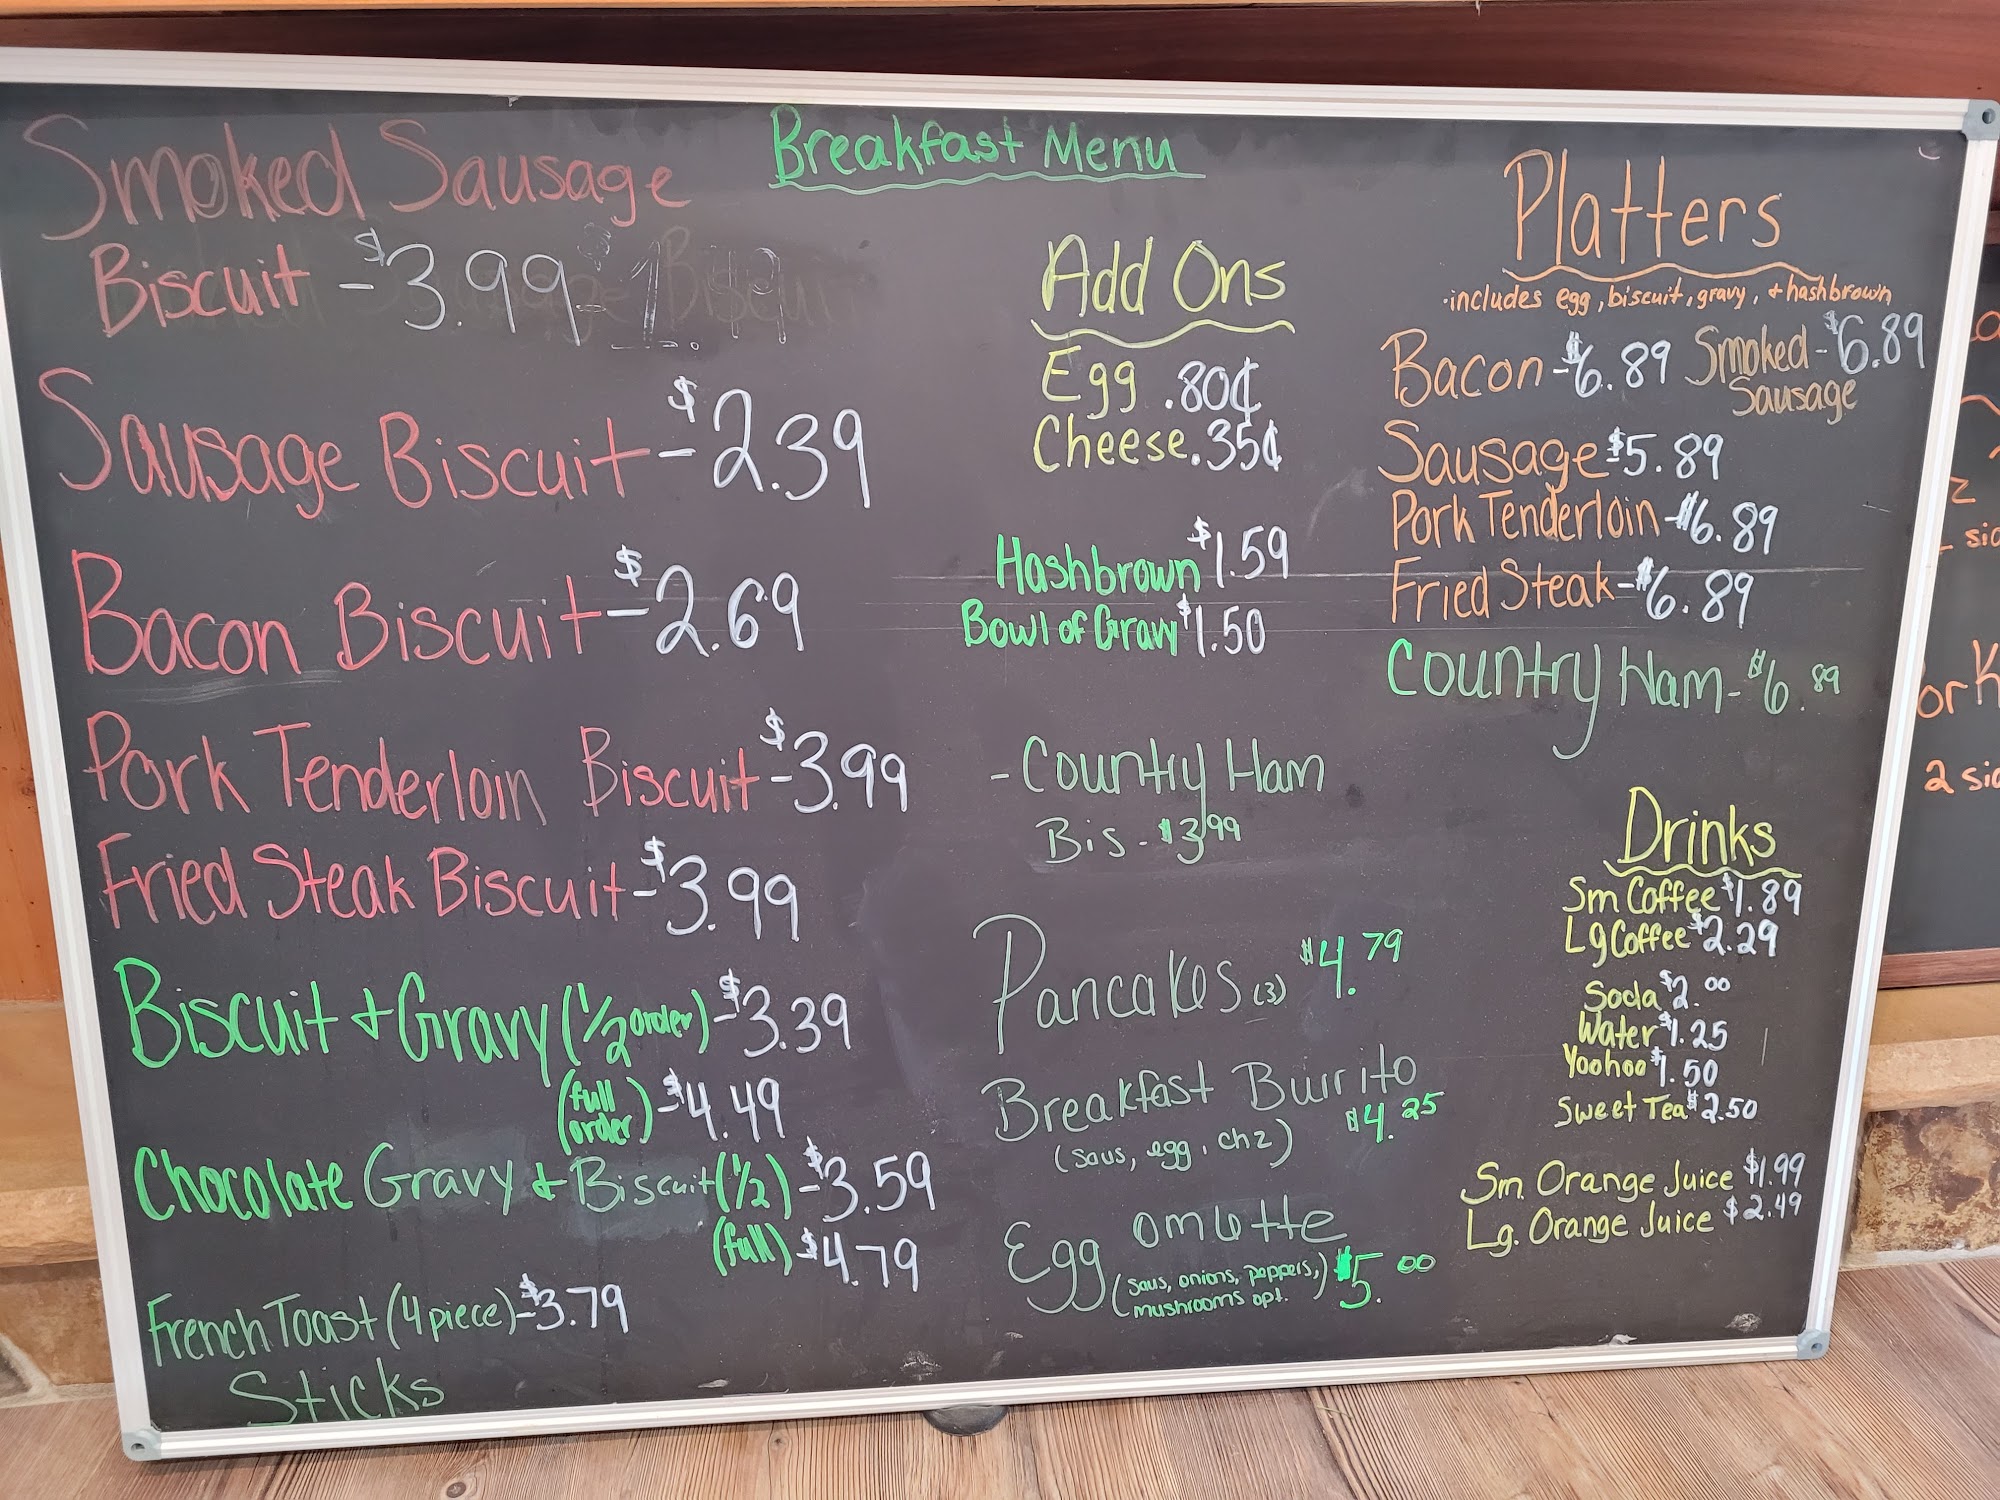 Breakfast Menu
Smoked Sausage
Biscuit - $3.99
Sausage Biscuit - $2.39
Bacon Biscuit - $2.69
Pork Tenderloin Biscuit - $3.99
Fried Steak Biscuit - $3.99
Biscuit + Gravy (1/2 order) - $3.39
(full order) - $4.49
Chocolate Gravy + Biscuit (1/2) - $3.59
(full) - $4.79
French Toast (4 piece) - $3.79
Sticks
Add Ons
Egg .80¢
Cheese .35¢
Hashbrown $1.59
Bowl of Gravy $1.50
- Country Ham
Bis - $3.99
Pancakes (3) $4.79
Breakfast Burrito
(saus, egg, chz) $4.25
Egg omlette
(saus, onions, peppers,
mushrooms opt.) $5.00
Platters
·includes egg, biscuit, gravy, + hashbrown
Bacon - $6.89
Smoked - $6.89
Sausage
Sausage - $5.89
Pork Tenderloin - $6.89
Fried Steak - $6.89
Country Ham - $6.89
Drinks
Sm Coffee $1.89
Lg Coffee $2.29
Soda $2.00
Water $1.25
Yoohoo $1.50
Sweet Tea $2.50
Sm. Orange Juice $1.99
Lg. Orange Juice $2.49
ork
2 sid